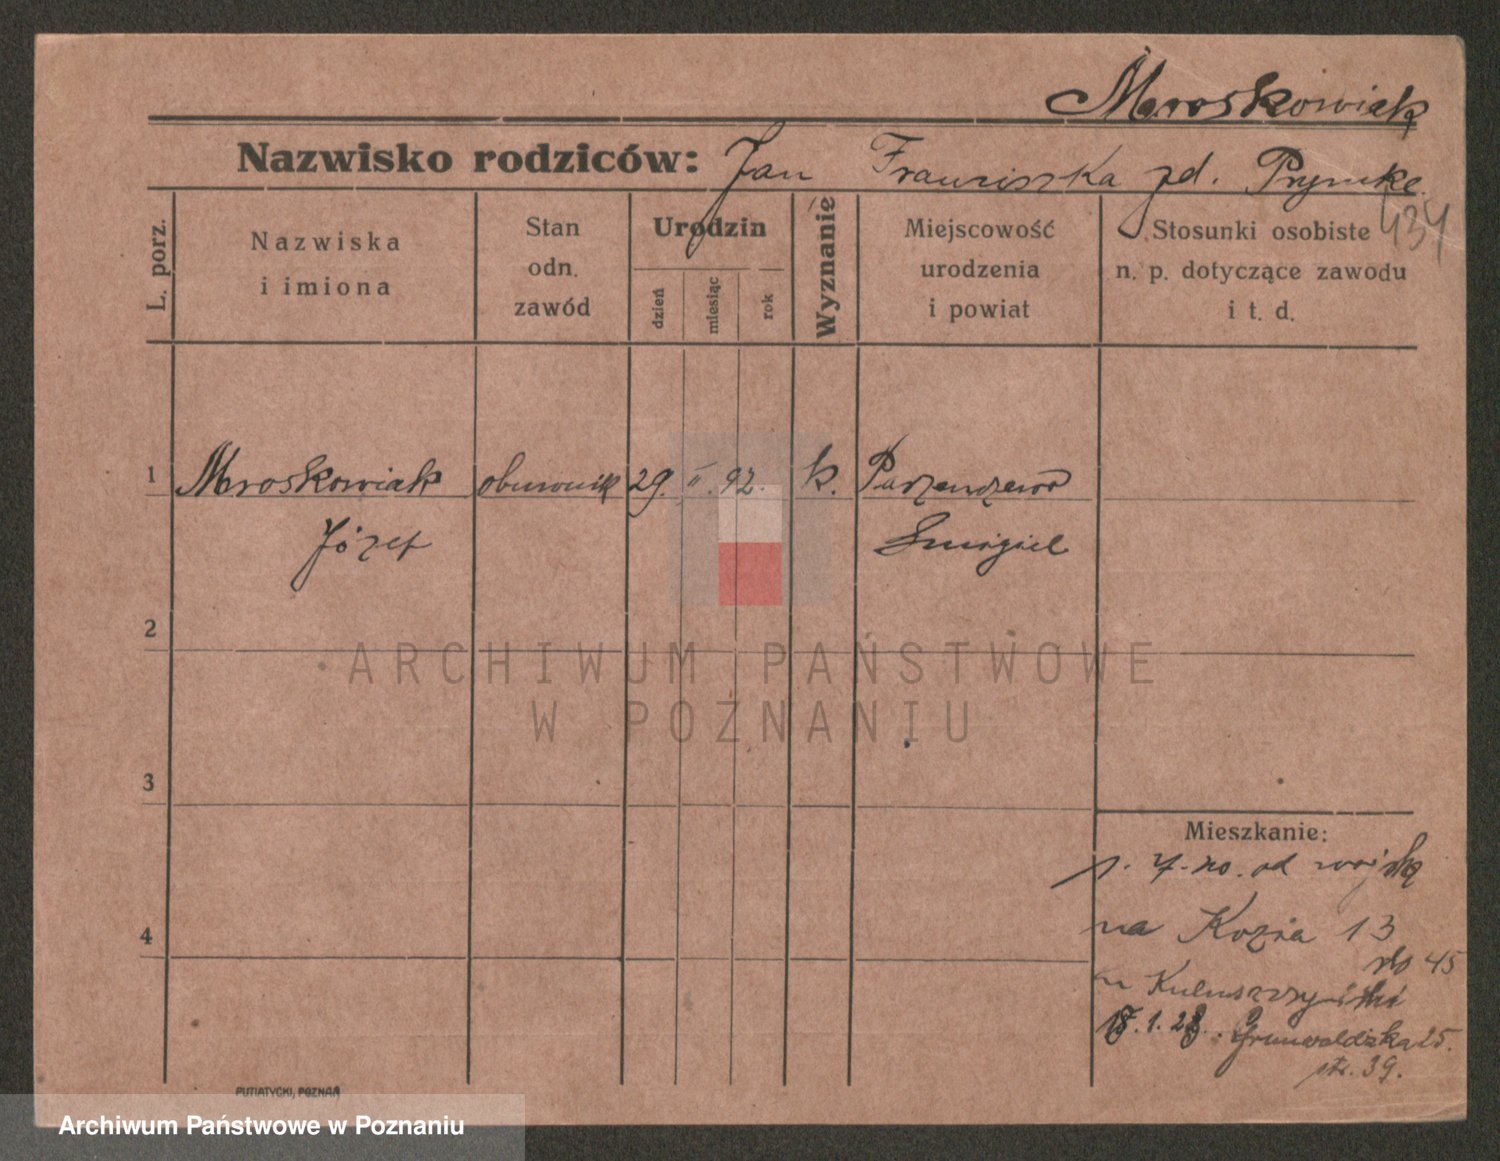 Mroskowiak
Nazwisko rodziców: Jan Franciszka zd. Prymke
434
L. porz.
Nazwiska
i imiona
Stan
odn.
zawód
Urodzin
dzień
miesiąc
rok
Wyznanie
Miejscowość
urodzenia
i powiat
Stosunki osobiste
n. p. dotyczące zawodu
i t. d.
1 Mroskowiak obuwnik 29. II. 92. k.
Józef Śmigiel
2
ARCHIWUM PAŃSTWOWE
W POZNANIU
3
Mieszkanie:
od
4
na Kozia 13
do 45
u
18.1.28. Grunwaldzka 25.
str. 39.
PUTIATYCKI, POZNAŃ
Archiwum Państwowe w Poznaniu